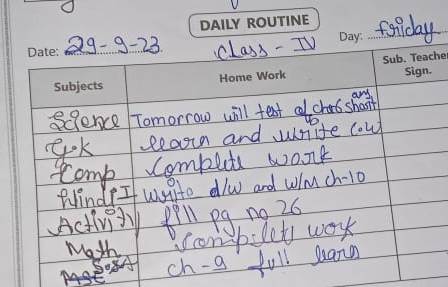 DAILY ROUTINE
Date: 29-9-23. Class - IV Day: friday
Subjects Home Work Sub. Teacher Sign.
Science Tomorrow will test of ch-6 short any
G.K learn and write C.W
Comp Complete work
Hindi I Write d/w and w/m ch-10
Activity fill pg no 26
Math Complete work
S.St ch-9 full learn